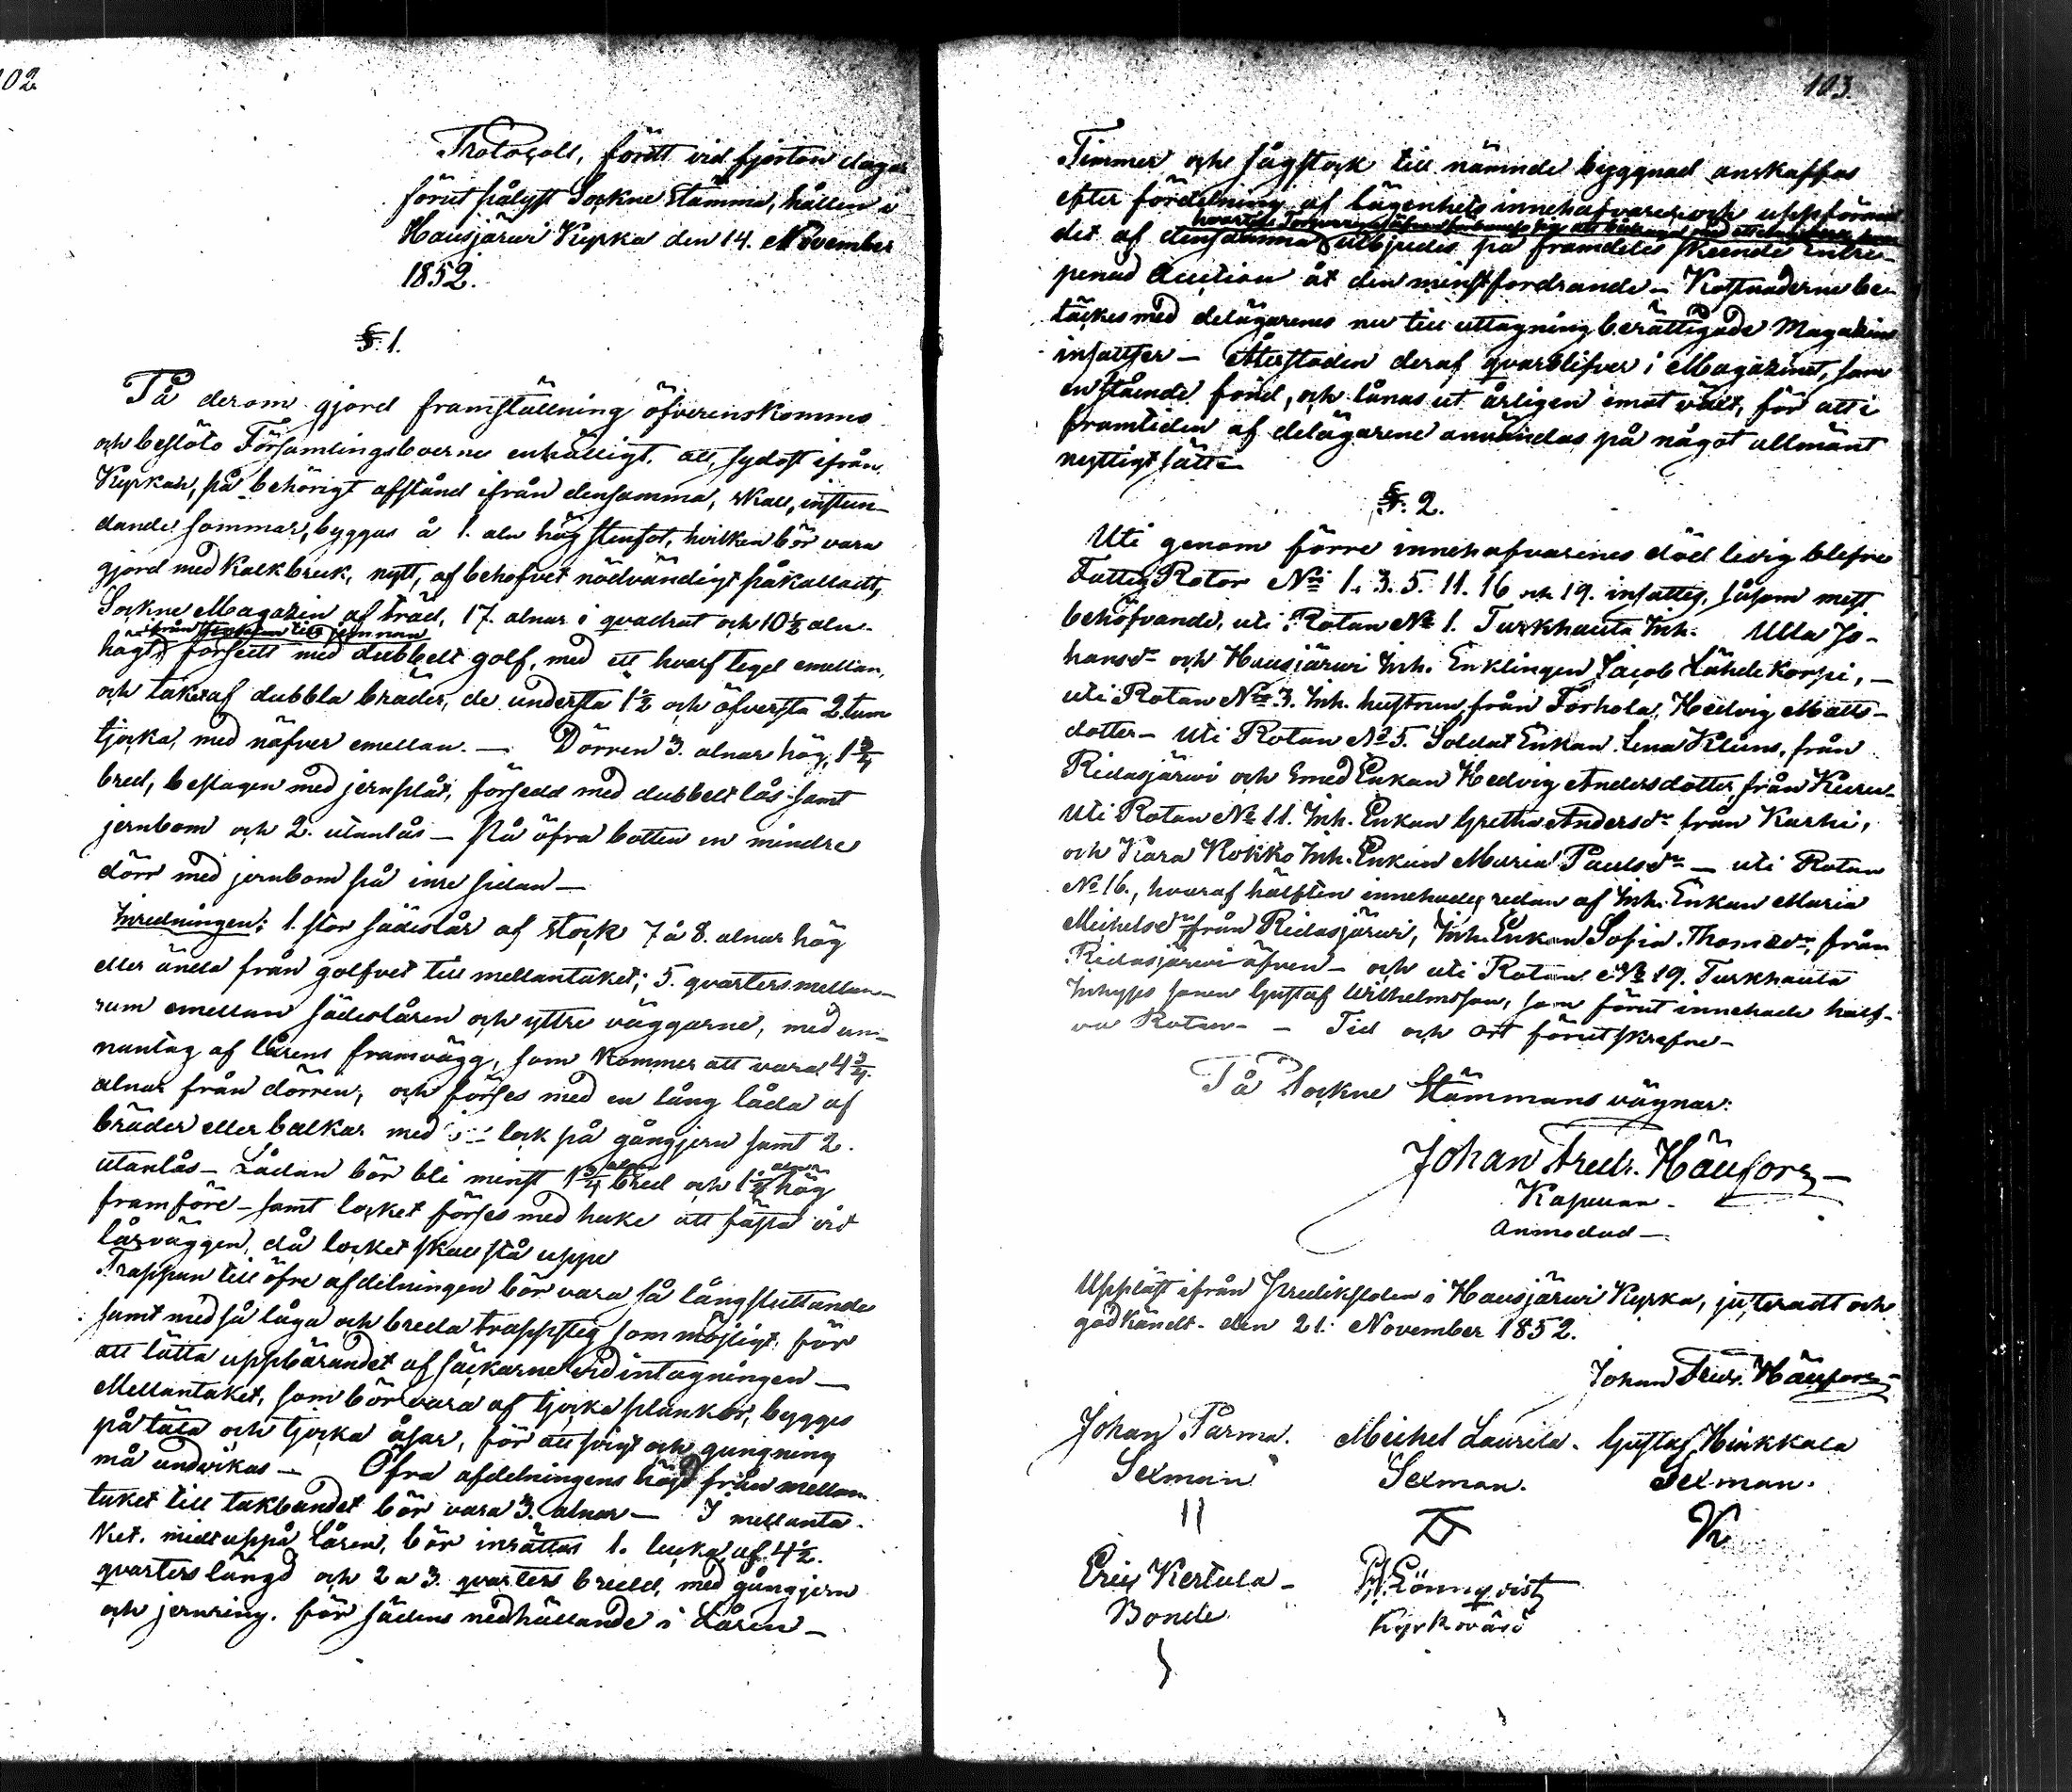 102
Protocoll, fördt vid fjorton dagar
förut pålyst Sockne Stämma, hållen i
Hausjärwi Kyrka den 14. November
1852.
§. 1.
På derom gjord framställning öfverenskommo
och beslöto Församlingsboerne enhälligt, att, sydost ifrån
Kyrkan, på behörigt afstånd ifrån densamma, skall, instun-
dande sommar, byggas å 1. aln hög stenfot, hvilken bör vara
gjord med kalkbruk, nytt, af behofvet nödvändigt påkalladt,
Sockne Magazin af träd, 17. alnar i quadrat och 10½ aln
ifrån stenfoten till
högt, försett med dubbelt golf, med ett hvarf tegel emellan,
och tak af dubbla bräder, de understa 1½ och öfversta 2. tum
tjocka, med näfver emellan. — Dörren 3. alnar hög, 1¾
bred, beslagen med jernplåt, försedd med dubbelt lås samt
jernbom och 2. utanlås — På öfra botten en mindre
dörr med jernbom på inre sidan —
Inredningen: 1. stor sädeslår af stock 7 à 8. alnar hög
eller ända från golfvet till mellantaket; 5. quarters mellan-
rum emellan sädeslåren och yttre väggarne, med un-
nantag af lårens framvägg, som kommer att vara 4¾.
alnar från dörren, och förses med en lång låda af
bräder eller balkar med lock på gångjern samt 2.
utanlås — Lådan bör bli minst 1¾ alnar bred och 1½ alnar hög
framföre — samt locket förses med hake att fästa vid
lårväggen, då locket skall stå uppe
Trappan till öfre afdelningen bör vara så långsluttande
samt med så låga och breda trappsteg som möjligt, för
att lätta uppbärandet af säckarne vid intagningen —
Mellantaket, som bör vara af tjocka plankor, bygges
på täta och tjocka åsar, för att svigt och gungning
må undvikas — Öfra afdelningens höjd från mellan-
taket till takbandet bör vara 3. alnar — I mellanta-
ket, midtuppå Låren, bör inrättas 1. lucka af 4½.
quarters längd och 2 a 3. quarters bredd, med gångjern
och jernring, för sädens nedhällande i Låren —
103.
Timmer och sågstock till nämnde byggnad anskaffas
efter fördelning af lägenhets innehafvarene och uppföran-
det af densamma utbjudes på framdeles skeende Entre-
penad Auction åt den minstfordrande — Kostnaderne be-
täckes med delägarenes nu till uttagning berättigade Magazins
insatser — Återstoden deraf qvarblifver i Magazinet, som
en stående fond, och lånas ut årligen emot växt, för att i
framtiden af delägarene användas på något allmänt
nyttigt sätt —
§. 2.
Uti genom förre innehafvarenes död ledig blefne
Fattig Rotor No 1. 3. 5. 11. 16 och 19. insattes, såsom mest
behöfvande, uti Rotan No 1. Turkhauta Inh. Ulla Jo-
hansdr och Hausjärwi Inh. Enklingen Jacob Lähdekorpi, —
uti Rotan No 3. Inh. hustrun från Torhola, Hedvig Matts-
dotter — Uti Rotan No 5. Soldat Enkan Lena Klims, från
Ridasjärwi och Smed Enkan Hedvig Andersdotter, från Kuru-
Uti Rotan No 11. Inh. Enkan Gretha Andersdr från Karhi,
och Kara Kokko Inh. Enkan Maria Paulsdr — uti Rotan
No 16., hvaraf hälften innehades redan af Inh. Enkan Maria
Michelsdr från Ridasjärwi, Inh. Enkan Sofia Thomædr, från
Ridasjärwi äfven — och uti Rotan No 19. Turkhauta
Inhyses sonen Gustaf Wilhelmsson, som förut innehade half-
va Rotan — — Tid och ort förutskrefne —
På Sockne Stämmans vägnar:
Johan Fredr. Häufors —
Kapellan.
Anmodad —
Uppläst ifrån Predikstolen i Hausjärwi Kyrka, justeradt och
godkändt — den 21. November 1852.
Johan Fredr. Häufors —
Johan Parma. Michel Laurila. Gustaf Hinkkala
Sexman Sexman. Sexman.
Eric Kertula — Lönnqvist
Bonde. Kyrkovärd